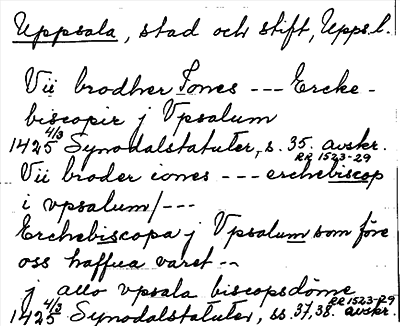 Uppsala, stad och stift, Upps.l.
Vii brodher Jones --- Ercke-
biscopir j Vpsalum
1425 4/3 Synodalstatuter, s. 35. avskr. RR 1523-29
Vii broder iones --- erchebiscop
i vpsalum/---
Erchebiscopa j Vpsalum som före
oss haffua varet --
j allo vpsala biscopsdöme
1425 4/3 Synodalstatuter, ss. 37, 38. avskr. RR 1523-29